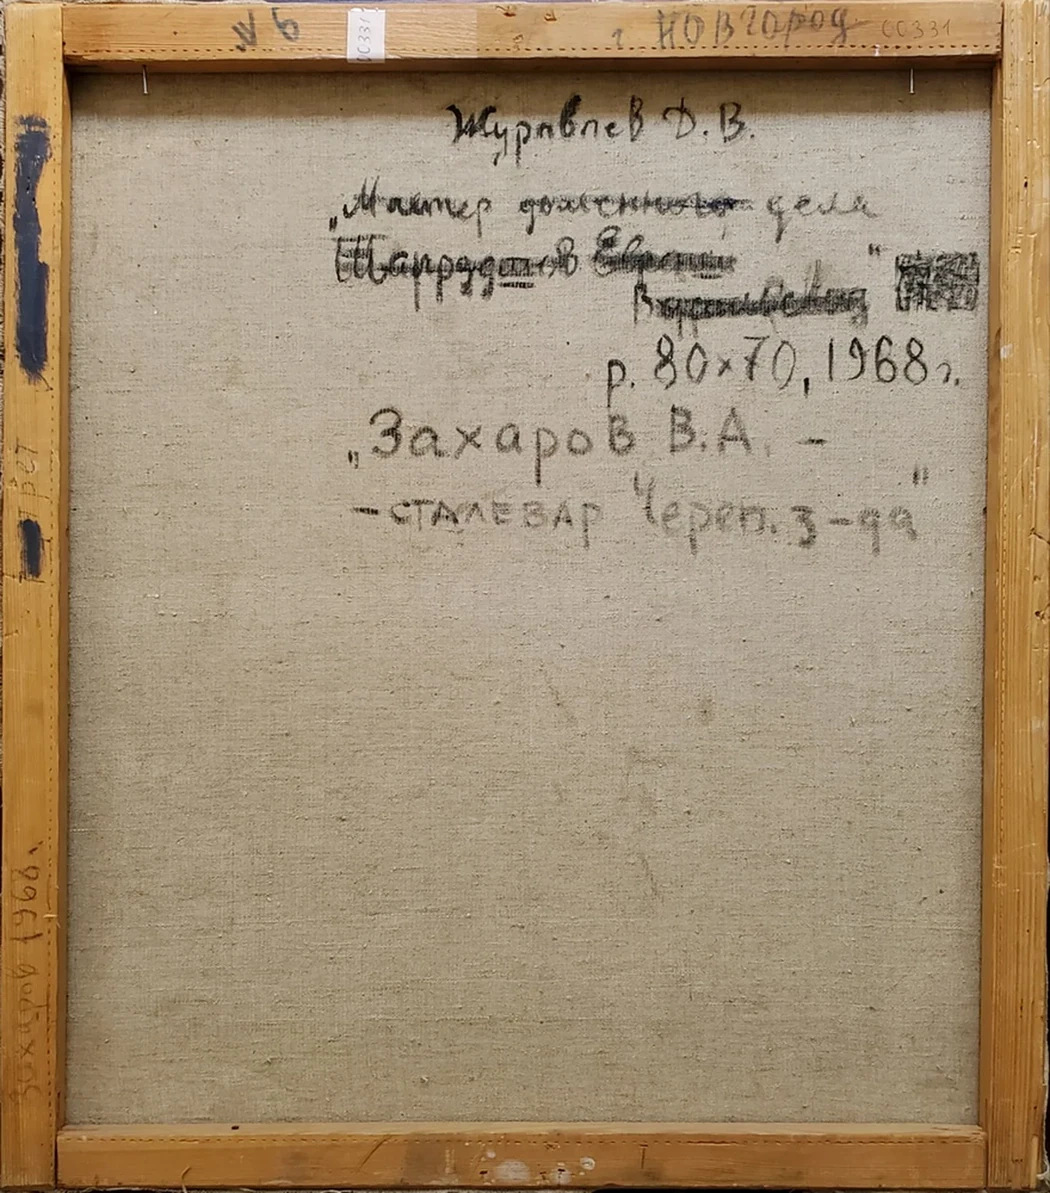 № 6 00331 г НОВГОРОД 00331
Журавлев Д. В.
„Мастер доменного дела
"
р. 80×70, 1968 г.
„Захаров В.А. –
– СТАЛЕВАР Череп. з-да"
трет
Захаров 1968 г.